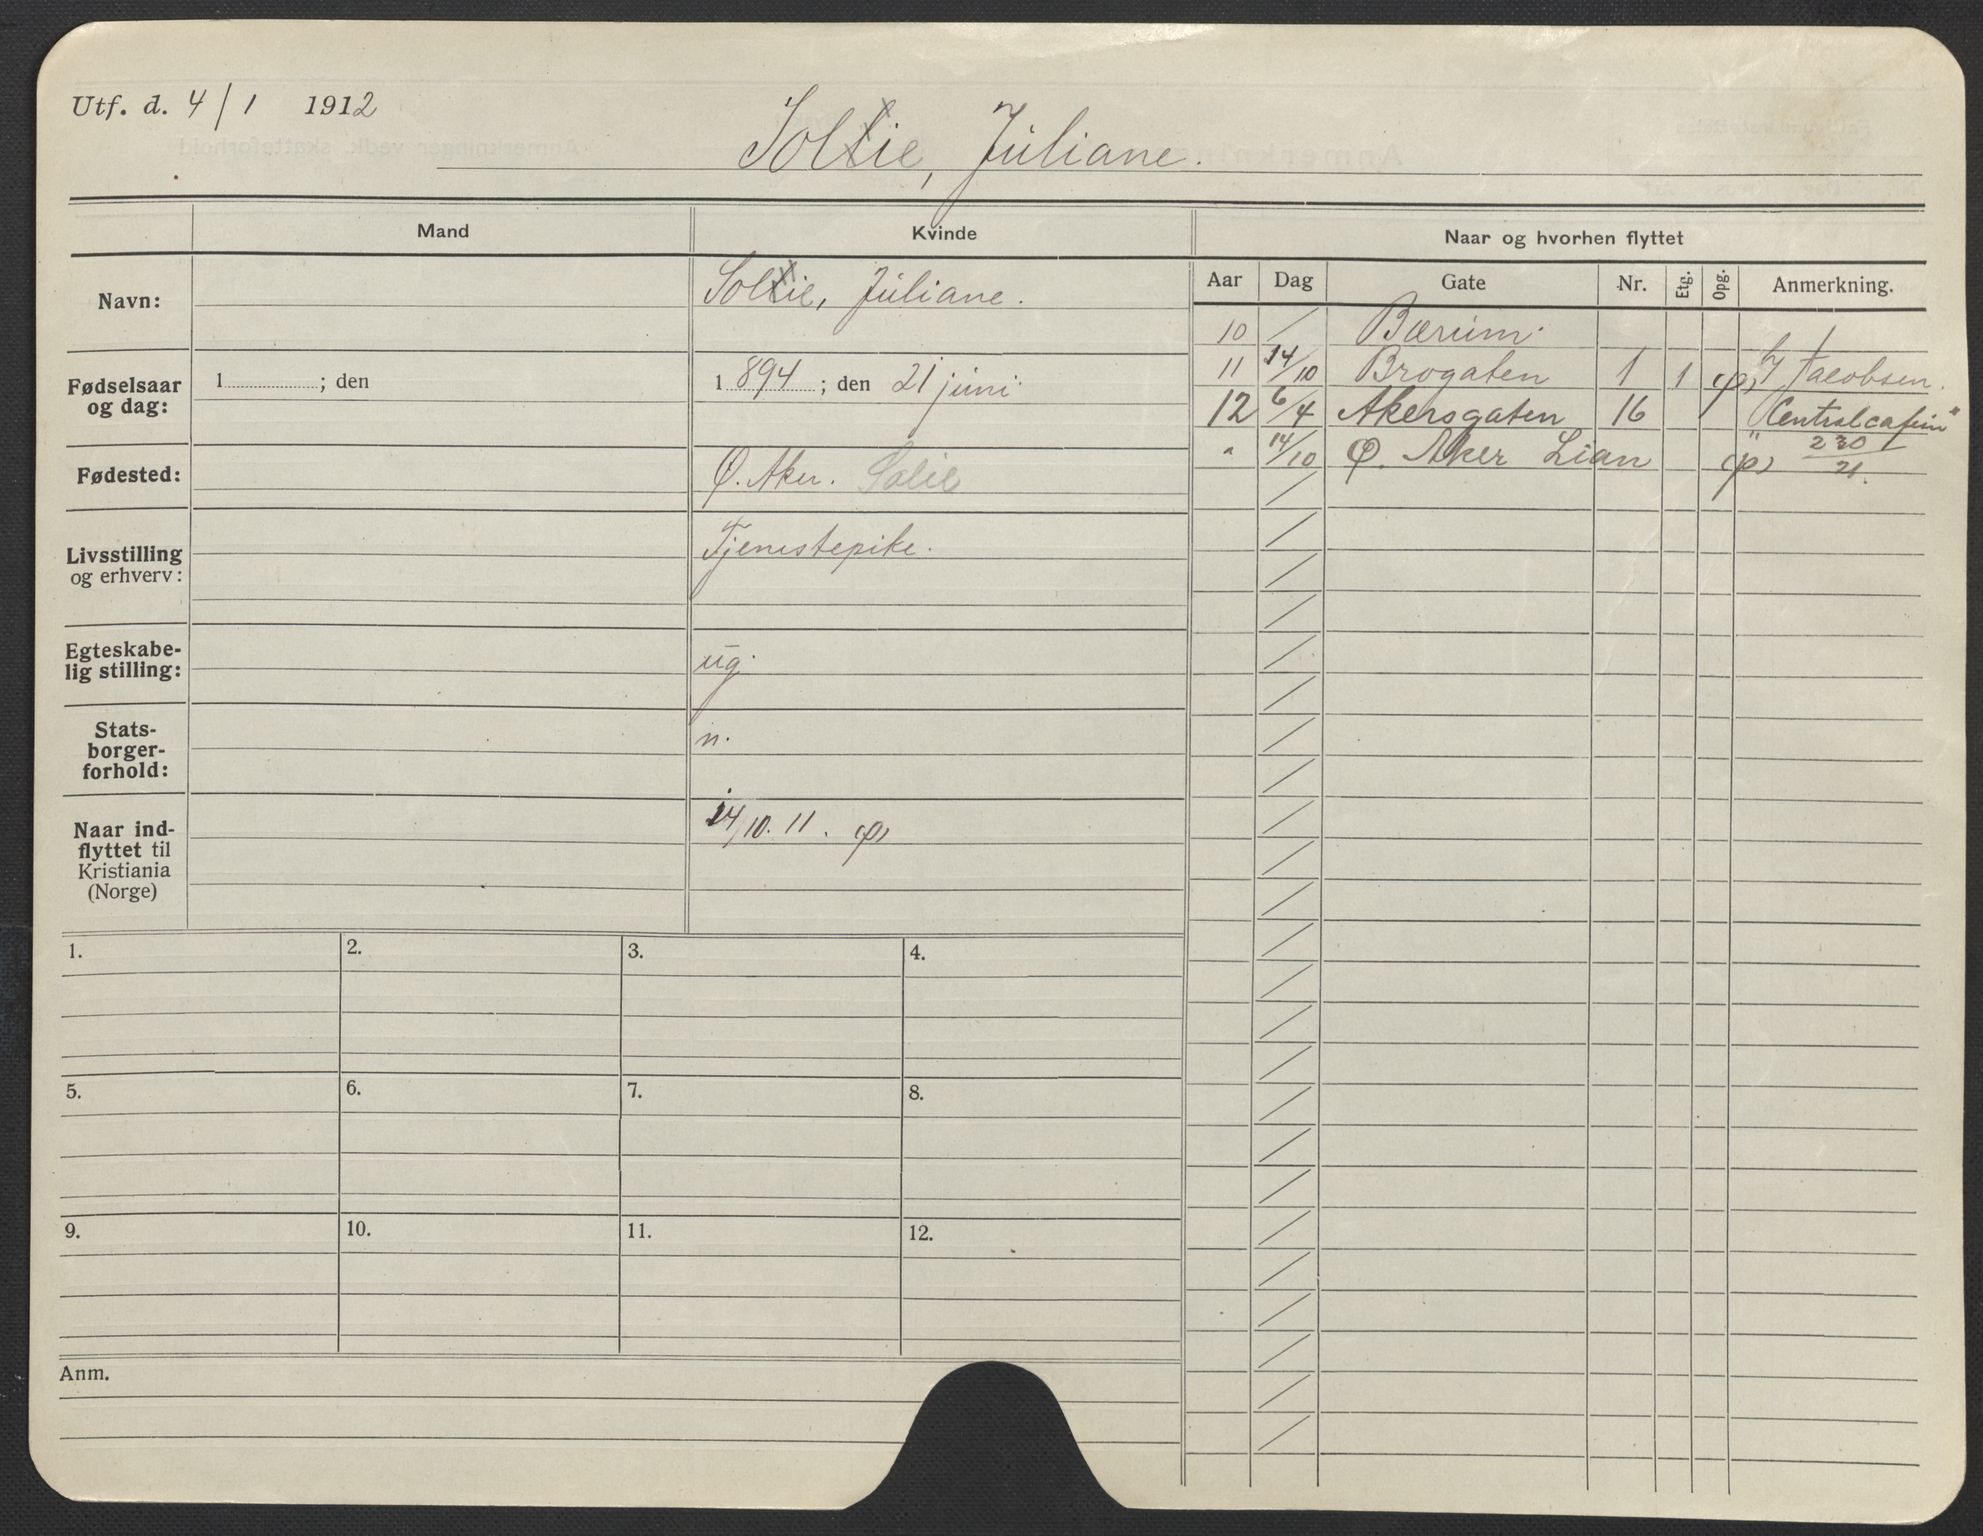 Utf. d. 4/1 1912
Sollie, Juliane.
Mand
Kvinde
Naar og hvorhen flyttet
Aar Dag Gate Nr. Etg. Opg. Anmerkning.
Navn:
Sollie, Juliane.
Fødselsaar og dag:
1 ; den
1 894 ; den 21 juni
Fødested:
Ø. Aker. Solie
Livsstilling
og erhverv:
Tjenestepike.
Egteskabe-
lig stilling:
ug.
Stats-
borger-
forhold:
n.
Naar ind-
flyttet til
Kristiania
(Norge)
14/10. 11. (p)
10 / Bærum.
11 14/10 Brogaten 1 1 (p) Jacobsen.
12 6/4 Akersgaten 16 "Centralcafeen"
" 14/10 Ø. Aker Lian (p) 230/21.
1. 2. 3. 4.
5. 6. 7. 8.
9. 10. 11. 12.
Anm.